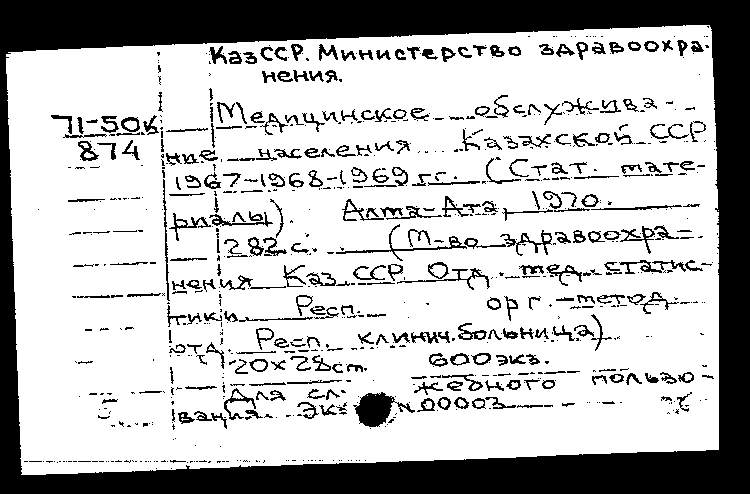 КазССР. Министерство здравоохра-
нения.
71-50к
874
Медицинское обслужива-
ние населения Казахской ССР
1967-1968-1969 гг. (Стат. мате-
риалы). Алма-Ата, 1970.
282 с. (М-во здравоохра-
нения Каз.ССР Отд. мед. статис-
тики. Респ. орг.-метод.
отд. Респ. клинич. больница)
20х28см. 600экз.
Для служебного пользо-
вания. Экз N.00003